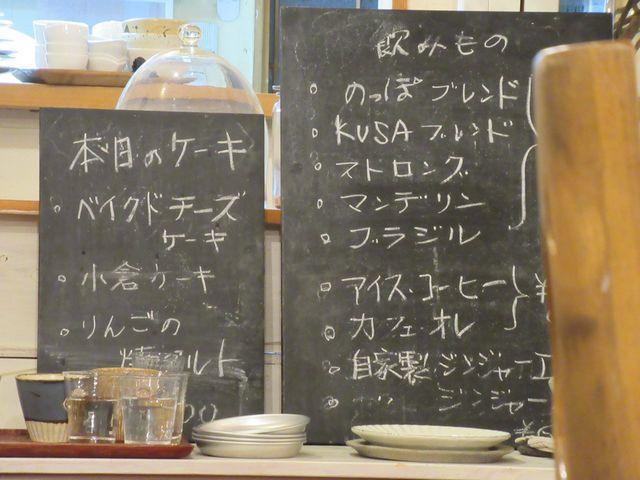 本日のケーキ
ベイクドチーズ
ケーキ
小倉ケーキ
りんごの
タルト
00
飲みもの
のっぽブレンド
KUSAブレンド
ストロング
マンデリン
ブラジル
アイス・コーヒー
カフェ・オレ
自家製ジンジャーエ
ジンジャー